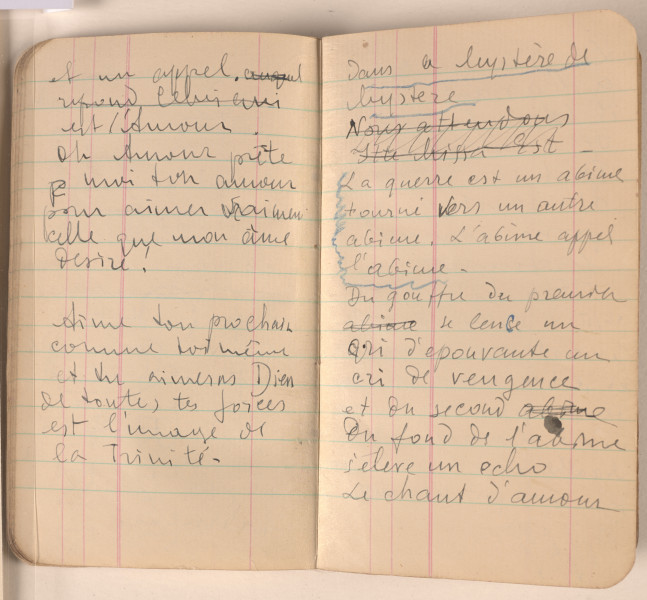 et un appel. auquel
repond Celui qui
est l'Amour.
Oh Amour prête
moi ton amour
pour aimer vraiment
celle que mon âme
desire!
Aime ton prochain
comme toi même
et tu aimeras Dieu
de toutes tes forces
est l'image de
la Trinité.
Dans le Mystère de
Mystère
Nous attendons
Ite Missa Est -
La guerre est un abime
tourné vers un autre
abime. L'abime appel
l'abime.
Du gouffre du premier
abime se lence un
cri d'epouvante un
cri de vengence
et du second abime
Du fond de l'abime
s'elève un echo
Le chant d'amour